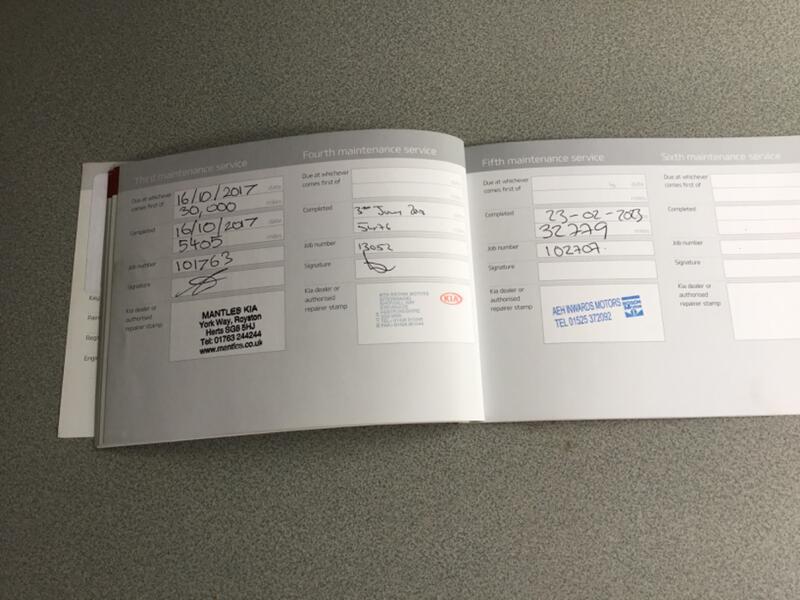 Third maintenance service
Due at whichever
comes first of
16/10/2017 date
30,000 miles
Completed
16/10/2017 date
5405 miles
Job number
101763
Signature
Kia dealer or
authorised
repairer stamp
MANTLES KIA
York Way, Royston
Herts SG8 5HJ
Tel: 01763 244244
www.mantles.co.uk
Fourth maintenance service
Due at whichever
comes first of
Completed
3rd
5476
Job number
13052
Signature
Kia dealer or
authorised
repairer stamp
KIA
Fifth maintenance service
Due at whichever
comes first of
date
miles
Completed
23-02-2003
32779 miles
Job number
102707.
Signature
Kia dealer or
authorised
repairer stamp
AEH INWARDS MOTORS
TEL 01525 372092
Sixth maintenance service
Due at whichever
comes first of
Completed
Job number
Signature
Kia dealer or
authorised
repairer stamp